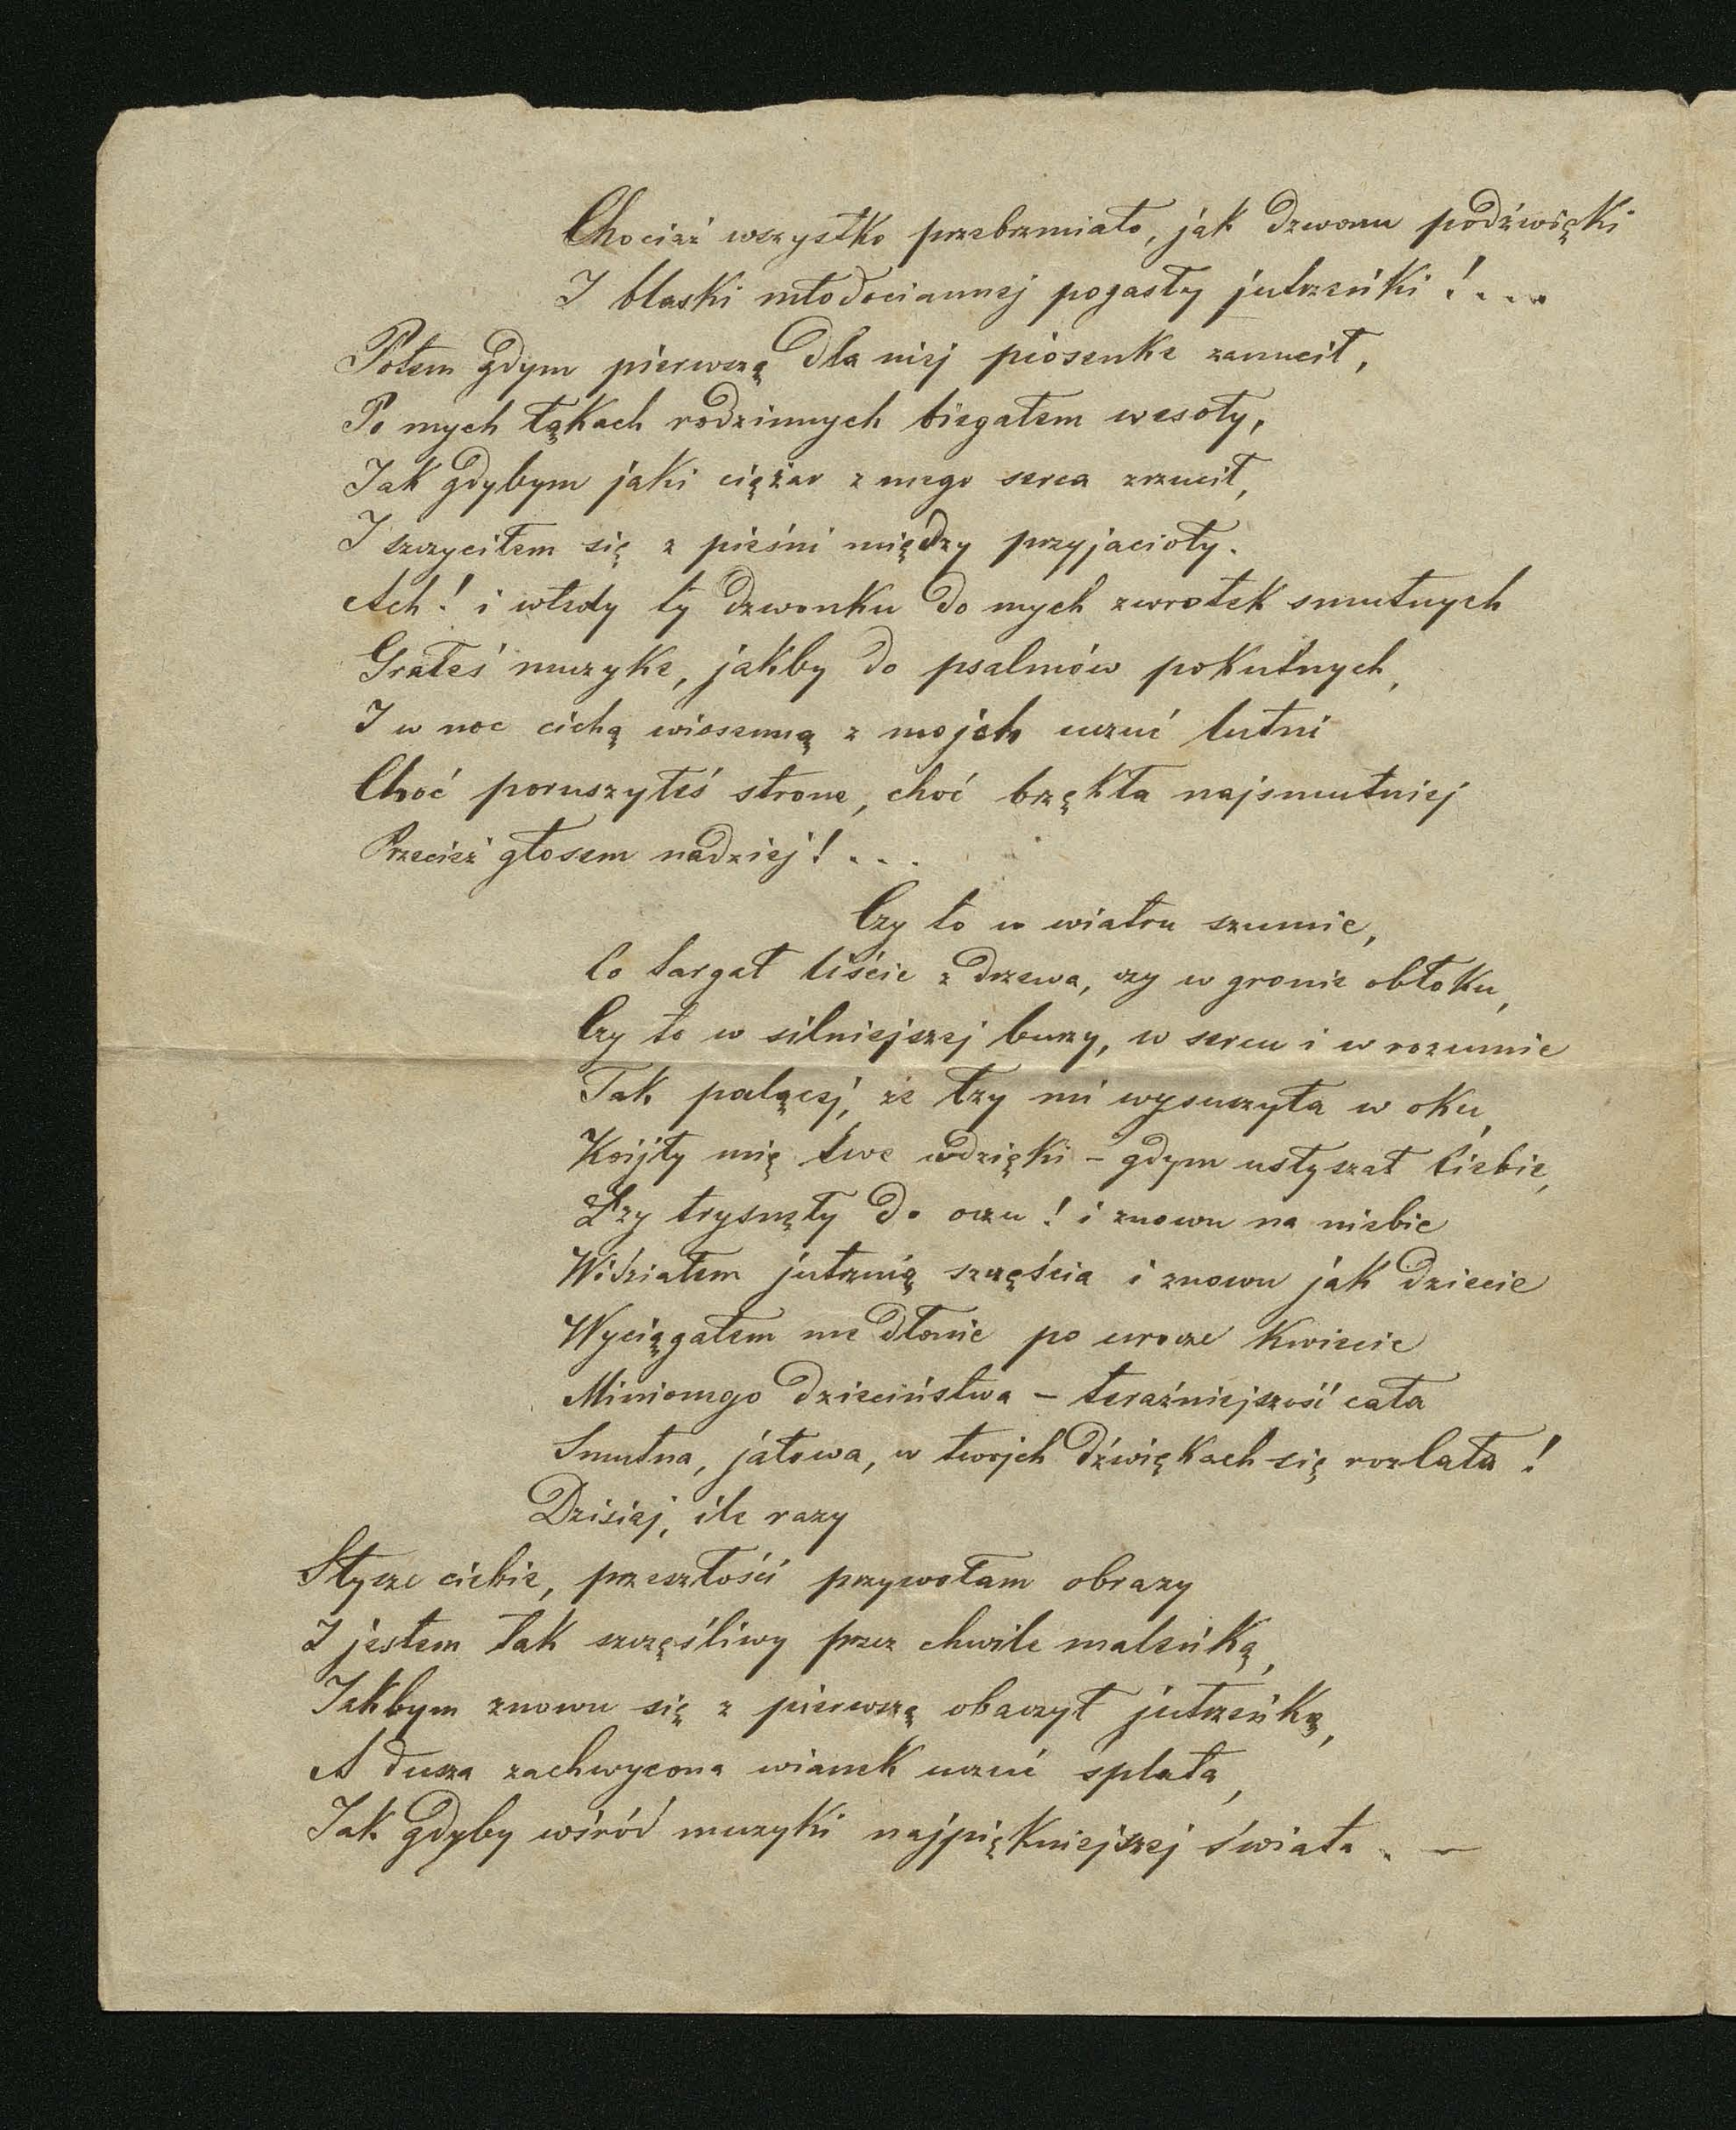 Chociaż wszystko przebrzmiało, jak dzwonu podźwięki
I blaski młodociannej pogasły jutrzeńki!....
Potem gdym pierwszą dla niej piosenke zanucił,
Po mych łąkach rodzinnych biegałem wesoły,
Jak gdybym jaki ciężar z mego serca zrzucił,
I szczyciłem się z pieśni między przyjacioły.
Ach! i wtedy ty dzwonku do mych zwrotek smutnych
Grałeś muzyke, jakby do psalmów pokutnych,
I w noc cichą wiosenną z mojch uczuć lutni
Choć poruszyłeś strone, choć brzękła najsmutniej
Przecież głosem nadziej!...
Czy to w wiatru szumie,
Co targał liście z drzewa, czy w gronie obłoku,
Czy to w silniejszej burzy, w sercu i w rozumie
Tak palącej, że łzy mi wysuszyła w oku,
Koijły mię twe wdzięki – gdym usłyszał ciebie,
Łzy trysnęły do oczu! i znowu na niebie
Widziałem jutrznią szczęścia i znowu jak dziecie
Wyciągałem me dłonie po urocze kwiecie
Minionego dzieciństwa – teraźniejszość cała
Smutna, jałowa, w twojch dźwiękach się rozlała!
Dzisiej, ile razy
Słysze ciebie, przeszłości przywołam obrazy
I jestem tak szczęśliwy przez chwile maleńką,
Jakbym znowu się z pierwszą obaczył jutrzeńką,
A dusza zachwycona wianek uczuć splata,
Jak gdyby wśród muzyki najpiękniejszej świata. –